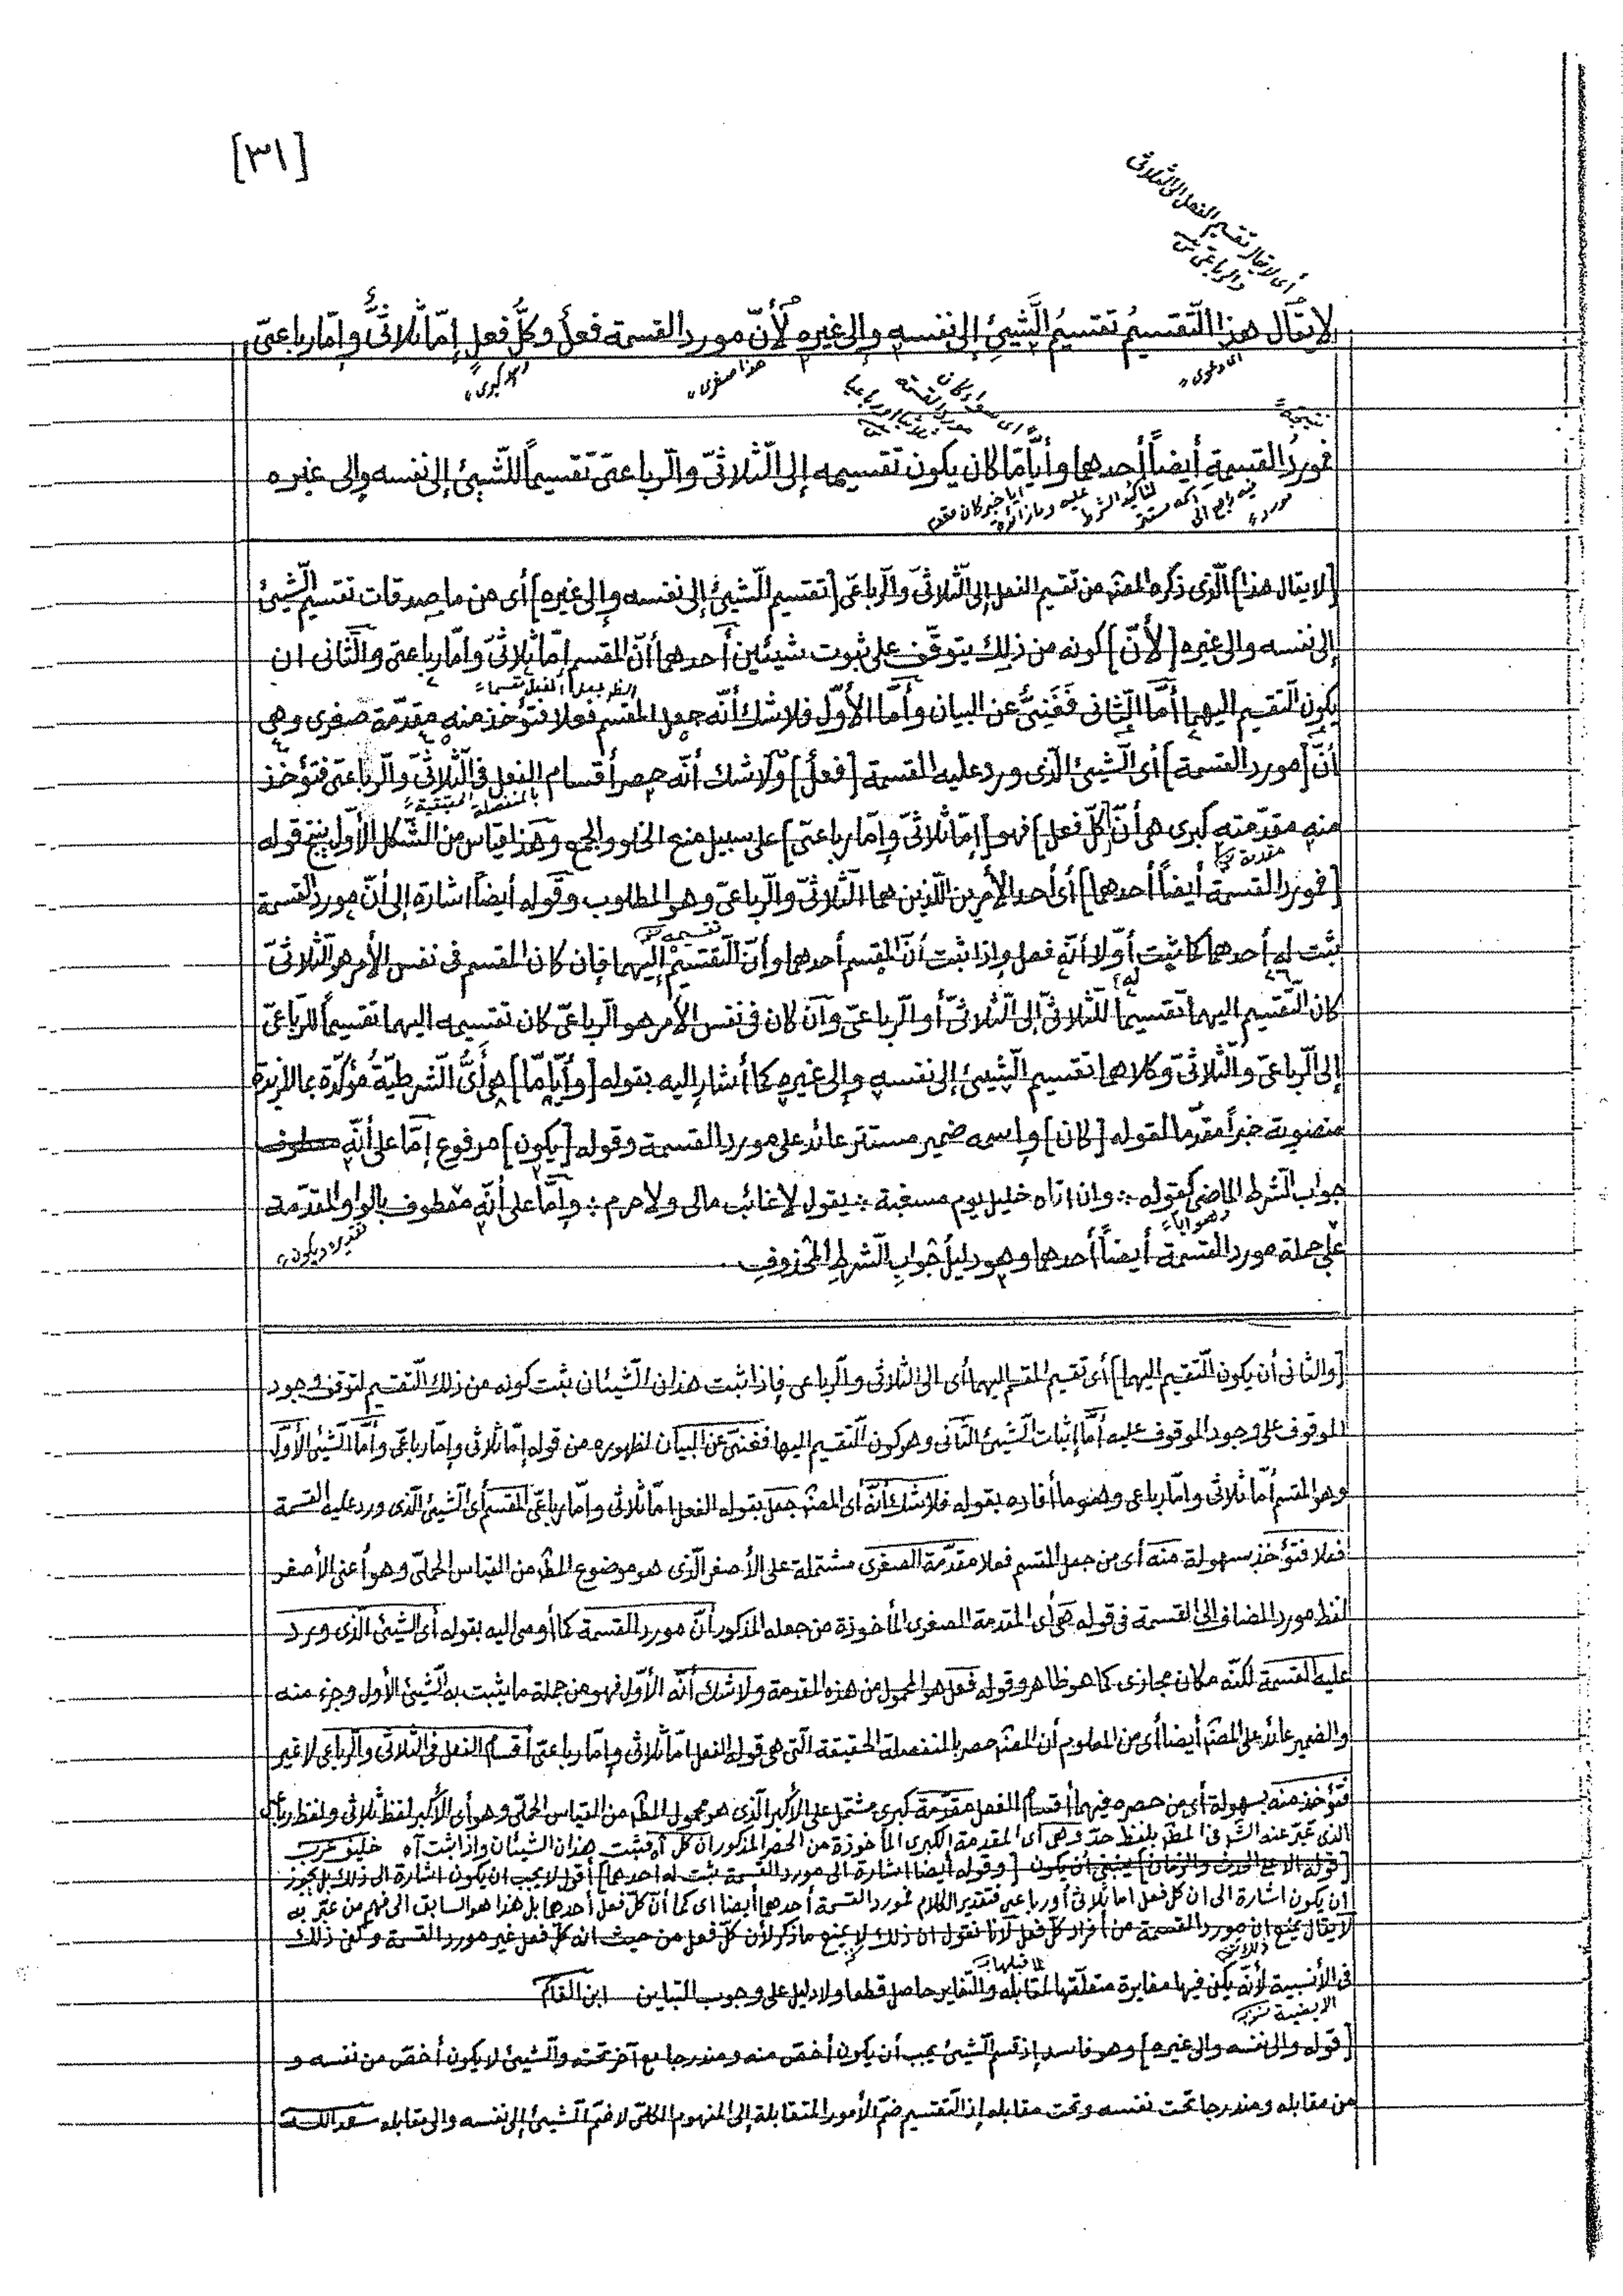 [٣١]
أى لا يقال تقسيم الفعل إلى الثلاثى
والرباعى
لا يقال هذا التّقسيمُ تقسيمُ الشّيئِ إلى نفسه وإلى غيره لأنّ مورد القسمة فعلٌ وكلُّ فعلٍ إمّا ثلاثىٌّ وإمّا رباعىّ
أى دعوى
هذا صغرى
كبرى
نتيجة
فموردُ القسمةِ أيضاً أحدهما وأيّاًمّا كان يكون تقسيمه إلى الثّلاثىّ والرّباعىّ تقسيماً للشّيئ إلى نفسه وإلى غيره
أيا خبر كان مقدم
[لا يقال هذا] الّذى ذكره المصنف من تقسيم الفعل إلى الثّلاثىّ والرّباعىّ [تقسيم الشّيئ إلى نفسه وإلى غيره] أى من ما صدقات تقسيم الشّيئ
إلى نفسه والى غيره [لأنّ] كونه من ذلك يتوقّف على ثبوت شيئين أحدهما أنّ المقسم إمّا ثلاثىّ وأمّا رباعىّ والثّانى ان
يكون التّقسيم اليهما أمّا الثّانى فَغَنِىٌّ عن البيان وأمّا الأوّل فلا شك أنّه جعل المقسم فعلا فتؤخذ منه مقدّمة صغرى وهى
أنّ [مورد القسمة] أى الشّيئ الّذى ورد عليه القسمة [فعلٌ] ولا شك أنّه حصر أقسام الفعل فى الثّلاثىّ والرّباعىّ فتؤخذ
بالمنفصلة الحقيقية
منه مقدّمته كبرى هى أنّ [كلّ فعل] فهو [إمّا ثلاثىّ وإمّا رباعىّ] على سبيل منع الخلو والجمع وهذا قياس من الشّكل الأوّل ينتج قوله
[فمورد القسمة أيضاً أحدهما] أى أحد الأمرين اللّذين هما الثّلاثىّ والرّباعىّ وهو المطلوب وقوله أيضاً اشارة إلى أنّ مورد القسمة
ثبت له أحدهما كما ثبت أوّلا أنّه فعل وإذا ثبت أنّ المقسم أحدهما وأنّ التّقسيم إليهما فإن كان المقسم فى نفس الأمر هو الثّلاثىّ
كان التّقسيم اليهما تقسيما للثّلاثىّ إلى الثّلاثىّ أو الرّباعىّ وآن كان فى نفس الأمر هو الرّباعىّ كان تقسيمه اليهما تقسيماً للرباعىّ
إلى الرّباعىّ والثّلاثىّ وكلاهما تقسيم الشّيئ إلى نفسه وإلى غيره كما أشار إليه بقوله [وأيّاًمّا] هو أىُّ الشّرطيّةُ مؤكّدة بما الزّيدة
منصوبة خبراً مقدّما لقوله [كان] وإسمه ضمير مستتر عائد على مورد القسمة وقوله [يكون] مرفوع إمّا على أنّه
جواب الشرط الماضى كقوله ∴ وان اتاه خليل يوم مسغبة ∴ يقول لا غائب مالى ولا حرم ∴ وإمّا على أنّه معطوف بالواو المقدّمة
على جملة مورد القسمة أيضاً أحدهما وهو دليلُ جوابِ الشّرطِ المحذوفِ
تقديره ويكون
[والثانى أن يكون التّقسيم اليهما] أى تقسيم المقسم اليهما أى الى الثلاثى والرباعى فإذا ثبت هذان الشّيئان ثبت كونه من ذلك التّقسيم لتوقف وجود
الموقوف على وجود الموقوف عليه أمّا إثبات الشيئ الثّانى وهو كون التّقسيم اليها فغنىّ عن البيان لظهوره من قوله إمّا ثلاثى وإمّا رباعىّ وأمّا الشّيئ الأوّل
وهو المقسم أمّا ثلاثى وامّا رباعى وهو ما أفاده بقوله فلا شك أنّه أى المصنف جعل بقوله الفعل امّا ثلاثى وامّا رباعىّ المقسم أى الشّيئ الّذى ورد عليه القسمة
فعلا فتؤخذ بسهولة منه أى من جعل المقسم فعلا مقدّمة الصغرى مشتملة على الأصغر الّذى هو موضوع المط من القياس الحملىّ وهو أعنى الأصغر
لفظ مورد المضاف إلى القسمة فى قوله هى أى المقدمة الصغرى المأخوذة من جعله المذكور أنّ مورد القسمة كما أومى اليه بقوله أى الشيئ الّذى ورد
عليه القسمة لكنّه مكان مجازى كما هو ظاهر وقوله فعل هو المحمول من هذه المقدمة ولا شك أنّه الأوّل فهو من جملة ما يثبت به الشّيئ الأول وجزء منه
والضمير عائد على المصنف أيضا أى من المعلوم أن المصنف حصر بالمنفصلة الحقيقة الّتى هى قوله الفعل امّا ثلاثى وإمّا رباعىّ أقسام الفعل فى الثلاثى والرباعى لا غير
فتؤخذ منه بسهولة أى من حصره فيهما أقسام الفعل مقدّمة كبرى مشتمل على الأكبر الّذى هو محمول المط من القياس الحملىّ وهو أى الأكبر لفظ ثلاثى ولفظ رباعى
الذى عبّر عنه الش فى المط بلفظ حدّ وهى أى المقدمة الكبرى المأخوذة من الحصر المذكور ان كل آه فثبت هذان الشيئان وإذا ثبت آه
[وقوله أيضا اشارة الى مورد القسمة ثبت له احدهما] أقول لا يجب ان يكون اشارة الى ذلك بل يجوز
ان يكون اشارة الى ان كل فعل اما ثلاثى أو رباعى فتقدير الكلام فمورد القسمة أحدهما أيضا اى كما أنّ كل فعل أحدهما بل هذا هو السابق الى فهم من عبّر به
لا يقال يمنع ان مورد القسمة من أفراد كلّ فعل لانا نقول ان ذلك لا يمنع ما ذكر لأن كلّ فعل من حيث انه كل فعل غير مورد القسمة وكفى ذلك
فى الأنسبية لأنّه يكفى فيها مغايرة متعلّقها لمقابله والتّغاير حاصل قطعا ولا دليل على وجوب التباين
[قوله والى نفسه والى غيره] وهو فاسد إذ قسم الشّيئ يجب أن يكون أخصّ منه ومندرجا مع آخر تحته والشّيئ لا يكون أخصّ من نفسه و
من مقابله ومندرجا تحت نفسه وتحت مقابله إذ التّقسيم ضمّ الأمور المتقابلة إلى المفهوم الكلىّ لا ضمّ الشّيئ إلى نفسه والى مقابله سعد الله